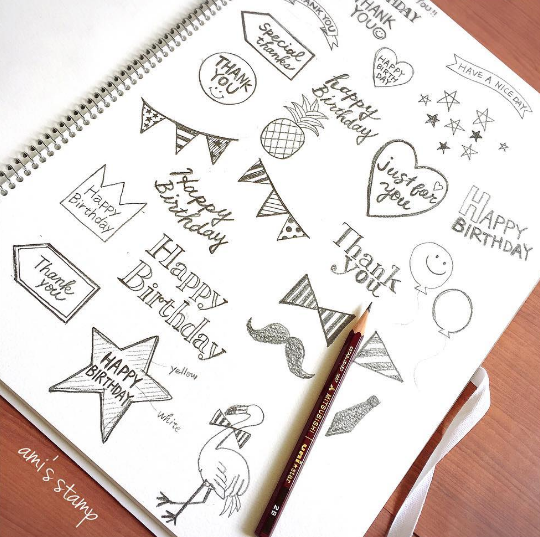 THANK YOU
THANK
YOU
Special
thanks
THANK
YOU
HAPPY
BIRTH
DAY
HAVE A NICE DAY
happy
Birthday
just for
you
Happy
Birthday
Happy
Birthday
HAPPY
BIRTHDAY
Thank
you
Thank
you
Happy
Birthday
HAPPY
BIRTHDAY
yellow
white
MITSUBISHI uni★star
2B
ami's stamp